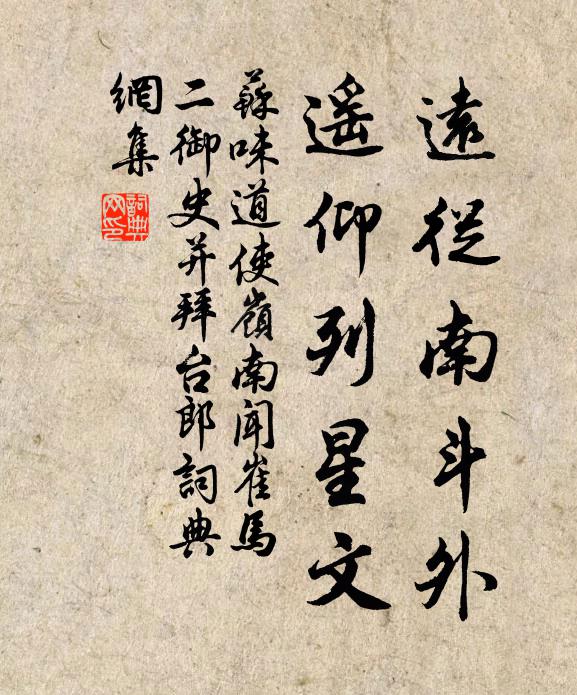 遠從南斗外
遥仰列星文
蘇味道使嶺南聞崔馬
二御史并拜台郎詞典
網集
詞典
网印